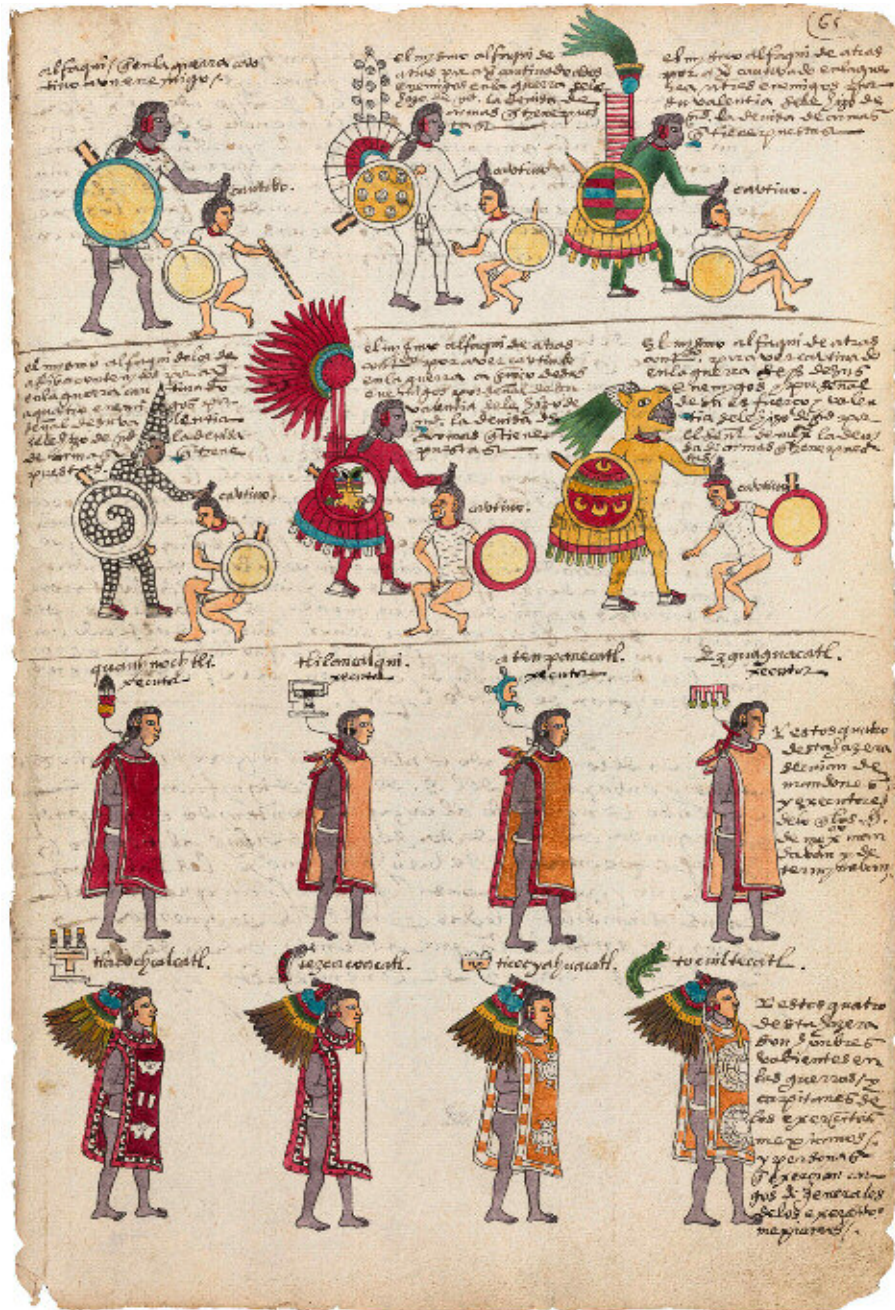 65
alfaqui / q̃ en la guerra cau
tivo a un enemigo /.
cautivo.
el mysmo alfaqui de
atras por aver cautivado dos
enemigos en la guerra se le
dado de
armas q̃ tiene pues
tas
cautivo.
el mysmo alfaqui de atras
por aver cautivado en la gue
rra a tres enemigos y por
su valentia se le hizo de
la devisa de armas
q̃ tiene puestas
cautivo.
el mysmo alfaqui de los de
atras
en la guerra cautivado
a quatro enemigos por
señal de su valentia
se le hizo la devisa
de armas q̃ tiene
puestas.
cautivo.
el mysmo alfaqui de atras
por aver cautivado
en la guerra a cinco de sus
enemigos por señal de su
valentia se le hizo
la devisa de
armas q̃ tiene
puestas
cautivo.
El mysmo alfaqui de atras
por aver cautivado
en la guerra seys de sus
enemigos y por señal
de su esfuerço y valen
tia se le hizo por
el señor de mexico la devi
sa de armas q̃ tiene pues
tas
cautivo.
quauhnochtli.
xecutor
tlilancalqui.
xecutor
atenpanecatl.
xecutor
Ezguaguacatl.
xecutor
Y estos quatro
desta hazera
servian de
mandones
y executores
de lo q̃ los
de mexico man
davan y de
terminavan
tlacochcalcatl.
tezcacoacatl.
ticocyahuacatl.
tocuiltecatl.
Y estos quatro
desta hazera
son honbres
valientes en
las guerras / y
capitanes de
los exercitos
mexicanos /.
y personas
q̃ exercian car
gos de generales
de los exercitos
mexicanos /.